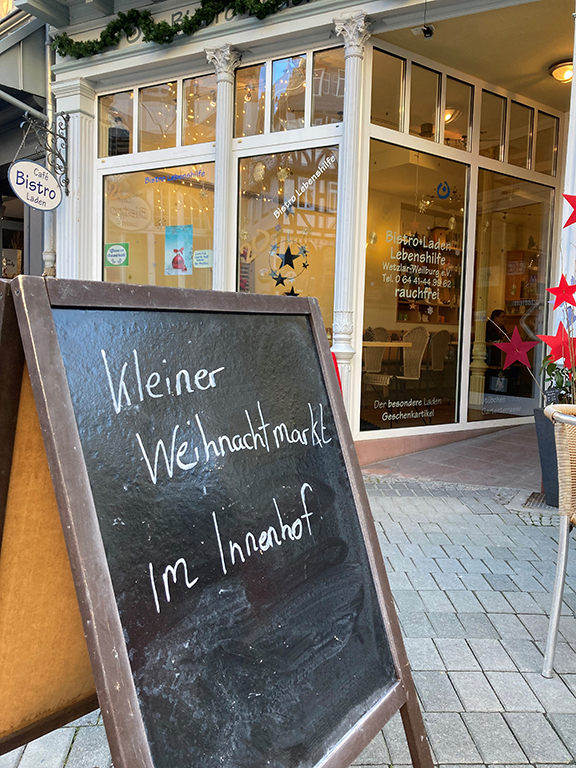 Café
Bistro
Laden
Bistro Lebenshilfe
Bistro Lebenshilfe
Bistro + Laden
Lebenshilfe
Wetzlar-Weilburg e.V.
Tel. 0 64 41-44 99 62
rauchfrei
Der besondere Laden
Geschenkartikel
Kleiner
Weihnachtmarkt
im Innenhof.